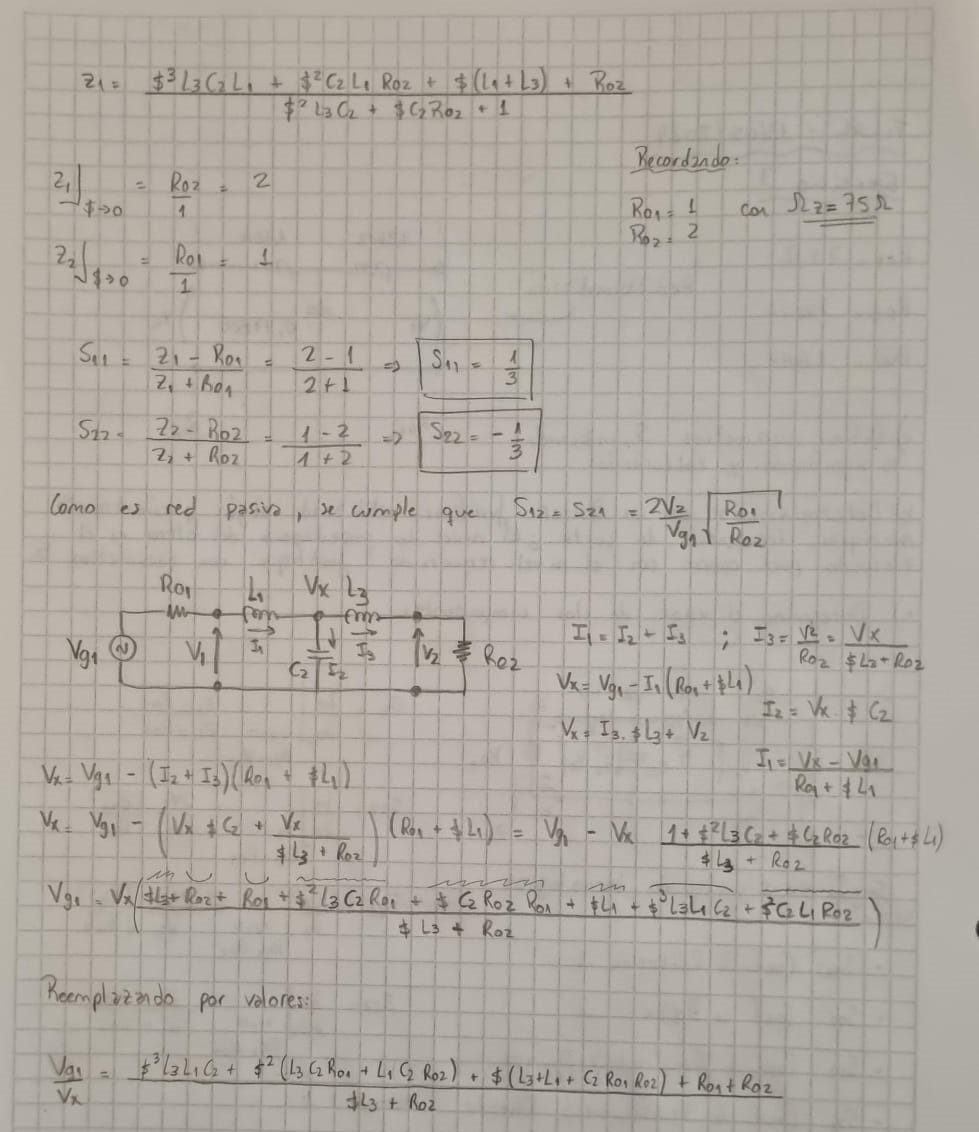 Z1 = $³L3C2L1 + $²C2L1Ro2 + $(L1+L3) + Ro2 / $²L3C2 + $C2Ro2 + 1
Recordando:
Z1]$→0 = Ro2/1 = 2
Ro1 = 1 con Ωz = 75Ω
Ro2 = 2
Z2]$→0 = Ro1/1 = 1
S11 = Z1 - Ro1 / Z1 + Ro1 = 2-1 / 2+1 => S11 = 1/3
S22 = Z2 - Ro2 / Z2 + Ro2 = 1-2 / 1+2 => S22 = -1/3
Como es red pasiva, se cumple que S12 = S21 = 2V2/Vg1 √(Ro1/Ro2)
Ro1 L1 Vx L3
Vg1 V1 I1 C2 I2 I3 V2 Ro2
I1 = I2 + I3 ; I3 = V2/Ro2 = Vx / $L2 + Ro2
Vx = Vg1 - I1(Ro1 + $L1)
I2 = Vx . $ C2
Vx = I3 . $L3 + V2
I1 = Vx - Vg1 / Ro1 + $L1
Vx = Vg1 - (I2 + I3)(Ro1 + $L1)
Vx = Vg1 - (Vx $ C2 + Vx / $L3 + Ro2)(Ro1 + $L1) = Vg1 - Vx 1 + $²L3C2 + $C2Ro2 / $L3 + Ro2 (Ro1 + $L1)
Vg1 = Vx($L3 + Ro2 + Ro1 + $²L3C2Ro1 + $ C2 Ro2 Ro1 + $L1 + $³L3L1C2 + $²C2L1Ro2 / $L3 + Ro2)
Reemplazando por valores:
Vg1/Vx = $³L3L1C2 + $²(L3C2Ro1 + L1C2Ro2) + $(L3+L1 + C2Ro1Ro2) + Ro1+Ro2 / $L3 + Ro2